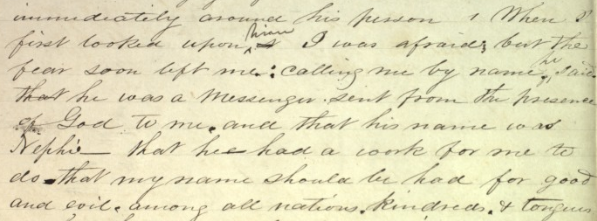 immediately around his person When I
first looked upon him I was afraid; but the
fear soon left me: calling me by name, he said
that he was a Messenger, sent from the presence
of God to me. and that his name was
Nephi that he had a work for me to
do. that my name should be had for good
and evil. among all nations. kindreds. & tongues